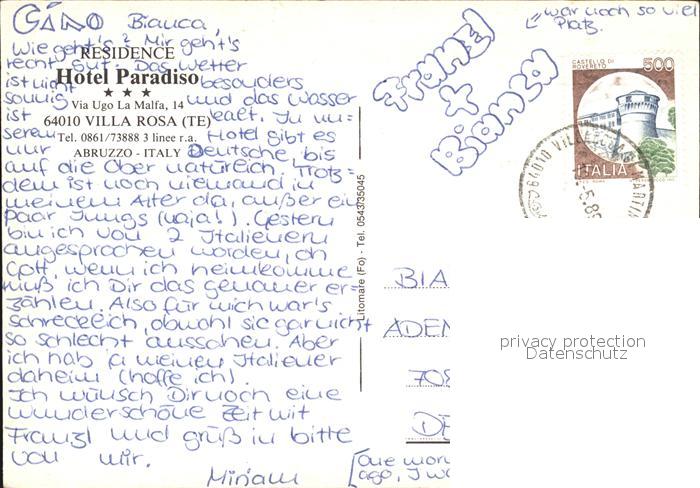 CIAO Bianca,
Wie geht's? Mir geht's
recht gut. Das Wetter
ist nicht besonders
sonnig und das Wasser
ist kalt. In un-
serem Hotel gibt es
nur Deutsche, bis
auf die Ober natürlich. Trotz-
dem ist noch niemand in
meinem Alter da, außer ein
paar Jungs (naja!). Gestern
bin ich von 2 Italienern
angesprochen worden, oh
Gott, wenn ich heimkomme
muß ich Dir das genauer er-
zählen. Also für mich war's
schrecklich, obwohl sie gar nicht
so schlecht aussahen. Aber
ich hab ja meinen Italiener
daheim (hoffe ich).
Ich wünsch Dir noch eine
wunderschöne Zeit mit
Franzl und grüß in bitte
von mir.
Miriam
RESIDENCE
Hotel Paradiso
★ ★ ★
Via Ugo La Malfa, 14
64010 VILLA ROSA (TE)
Tel. 0861/73888 3 linee r.a.
ABRUZZO - ITALY
Litomare (Fo) - Tel. 0543/35045
Franzl
+
Bianca
war noch so viel
Platz.
CASTELLO DI
ROVERETO
500
ITALIA
64010 VILLA
BIA
ADEN
705
DE
[One mor
ago, I w
privacy protection
Datenschutz